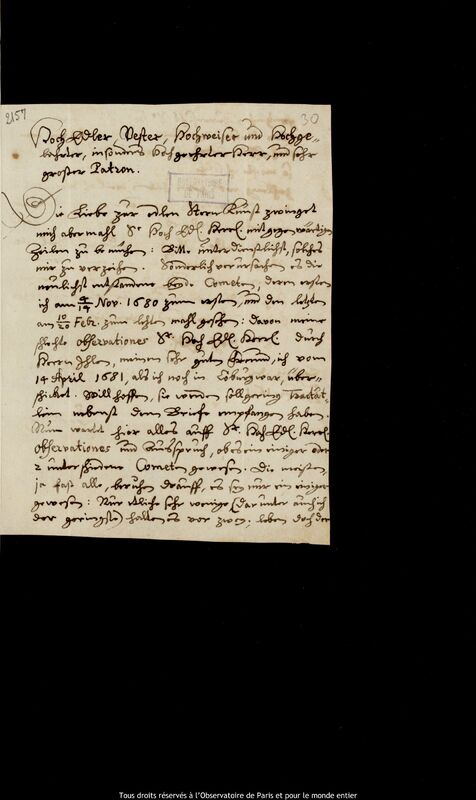 2157
30
Hoch Edler, Vester, Hochweiser und Hochge-
lahrter, insonders Hochgeehrter Herr, und sehr
grosser Patron.
Die Liebe zur edlen Stern Kunst zwinget
mich abermahl Sr. Hoch Edl. Herrl. mit gegenwärtigen
Zeilen zu : Bitte unterdienstlichst, solches
mir zu verzeihen. Sonderlich verursachen es die
neulichst entstandene beyde Cometen, deren ersten
ich am 4/14 Nov. 1680 zum ersten, und den letzten
am 10/20 Febr. zum letzten mahl gesehen: davon meine
schlechte observationes Sr. Hoch Edl. Herrl. durch
Herrn Ihlen, meinen sehr guten Freund, ich vom
14 April 1681, als ich noch in Coburg war, über-
schicket. Will hoffen, sie werden selbgering Tractät-
lein nebenst dem Briefe empfangen haben.
Nun wartet hier alles auff Sr. Hoch Edl. Herrl.
observationes und Ausspruch, ob es ein einiger oder
2 unterschiedene Cometen gewesen. Die meisten,
ja fast alle, beruhen drauff, es sey nur ein einiger
gewesen: Nur etliche sehr wenige (darunter auch ich
der geringste) halten es vor zwey; leben doch der
Tous droits réservés à l'Observatoire de Paris et pour le monde entier